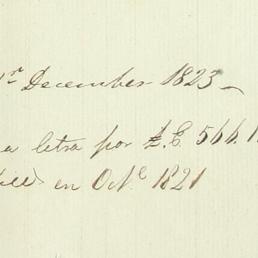 December 1823_
a letra por £.C. 566.1
en Oct.e 1821